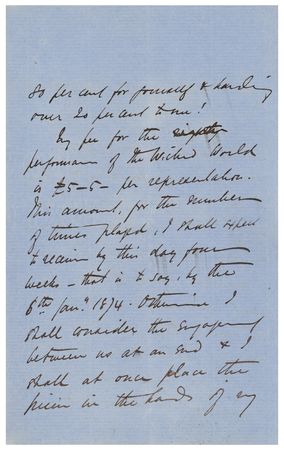 80 per cent for yourself & handing
over 20 per cent to me!
My fee for the nightly
performance of the Wicked World
is £5-5- per representation.
This amount, for the number
of times played, I shall expect
to receive by this day four
weeks – that is to say, by the
6th Jany. 1874. Otherwise I
shall consider the engagement
between us at an end & I
shall at once place the
piece in the hands of my